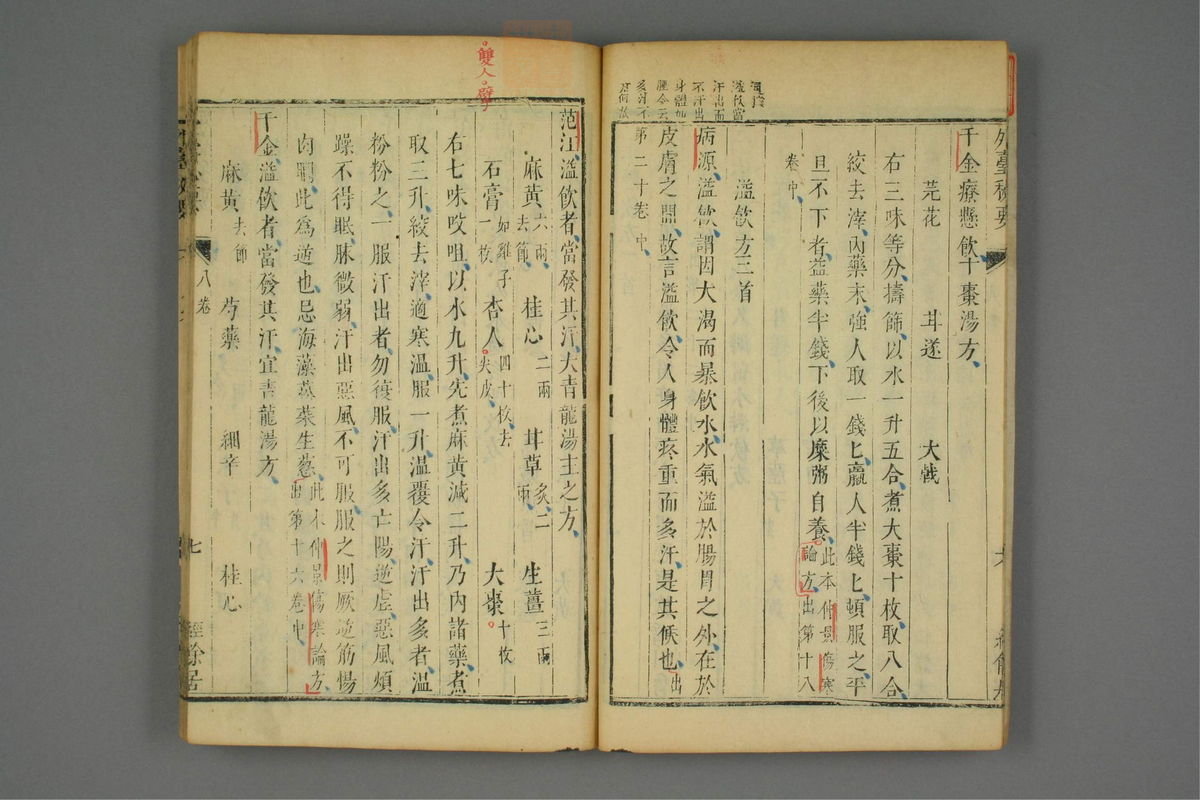 外臺秘要
千金療懸飲十棗湯方
芫花　甘遂　大戟
右三味等分擣篩以水一升五合煮大棗十枚取八合
絞去滓內藥末強人取一錢匕羸人半錢匕頓服之平
旦不下者益藥半錢下後以糜粥自養此本仲景傷寒
論方出第十八
卷中
溢飲方三首
病源溢飲謂因大渴而暴飲水水氣溢於腸胃之外在於
皮膚之間故言溢飲令人身體疼重而多汗是其候也出
第二十卷中
溢飲當
汗出而
不汗出
身體
范汪溢飲者當發其汗大青龍湯主之方
麻黃六兩去節　桂心二兩　甘草炙二兩　生薑三兩
石膏如雞子一枚　杏人四十枚去尖皮　大棗十枚
右七味㕮咀以水九升先煮麻黃減二升乃內諸藥煮
取三升絞去滓適寒溫服一升溫覆令汗汗出多者溫
粉粉之一服汗出者勿復服汗出多亡陽逆虛惡風煩
躁不得眠脉微弱汗出惡風不可服服之則厥逆筋惕
肉瞤此為逆也忌海藻菘菜生葱此本仲景傷寒論方
出第十六卷中
千金溢飲者當發其汗宜青龍湯方
麻黃去節　芍藥　細辛　桂心
雙人
八卷
七
經餘居